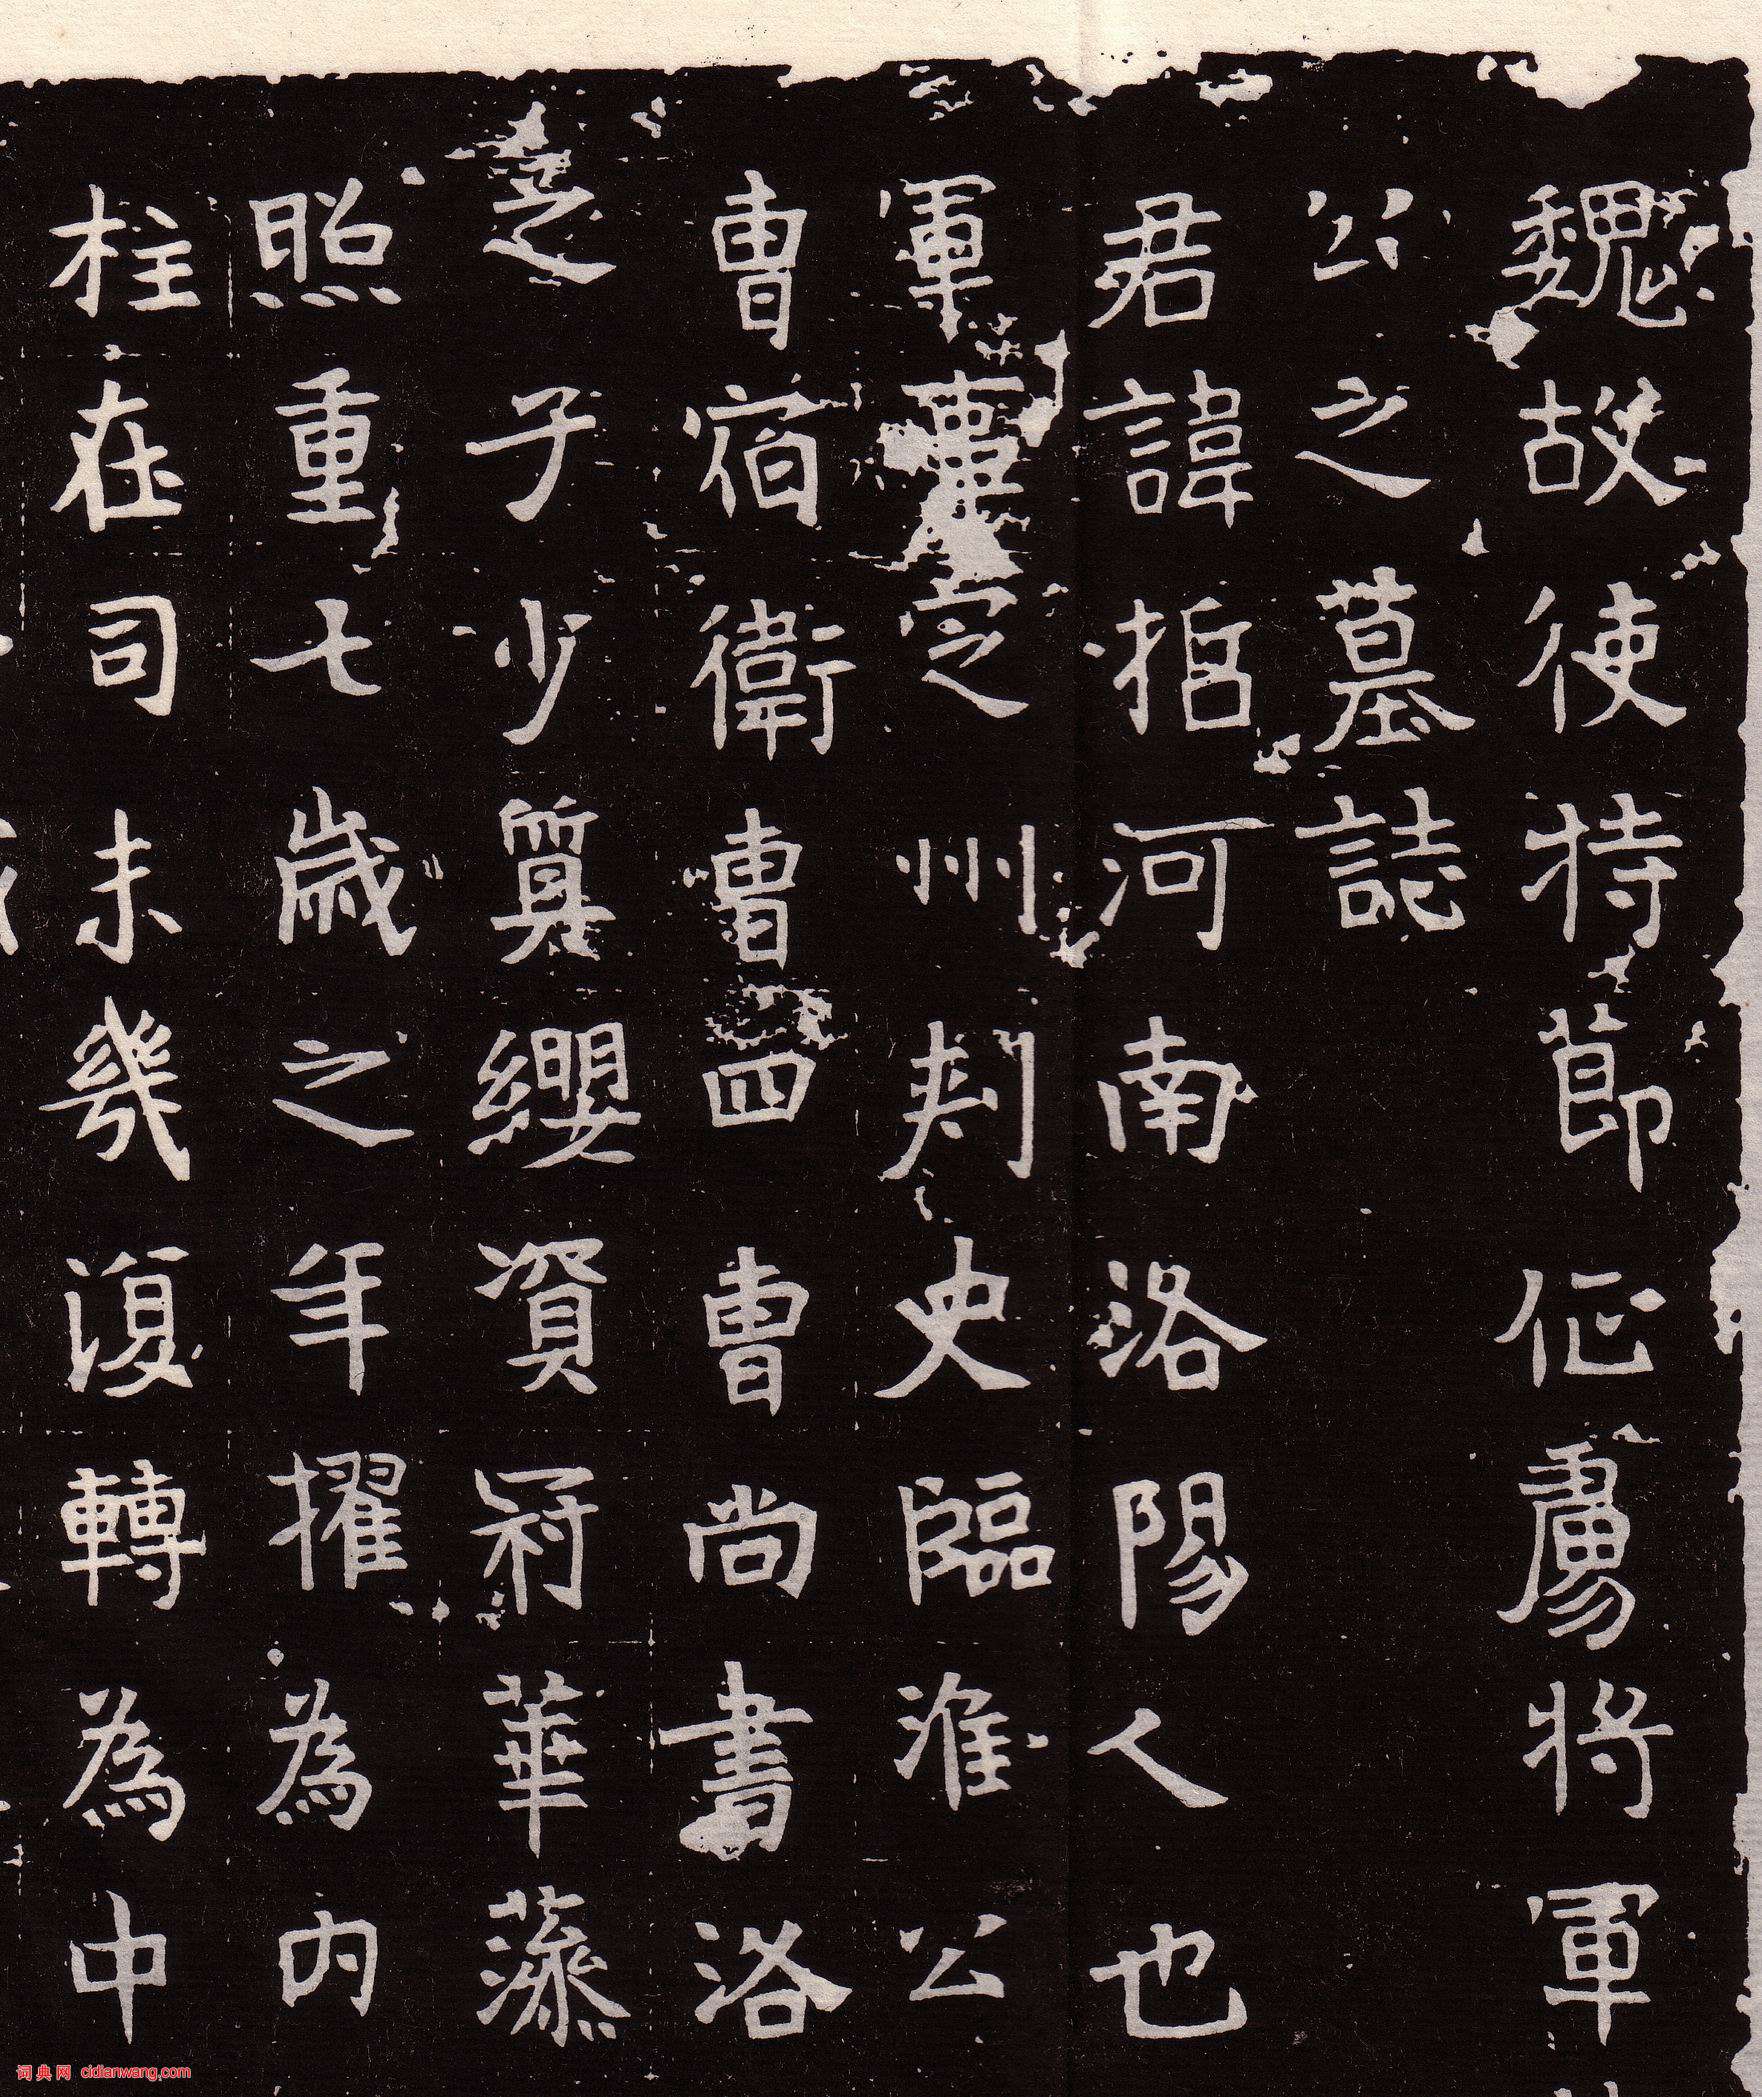 魏故使持節征虜將軍
公之墓誌
君諱河南洛陽人也
軍定州刾史臨淮公
曹宿衛曹四曹尚書洛
之子少質纓資冠華蔭
照重七歲之年擢為內
柱在司未幾復轉為中
词典网 cidianwang.com